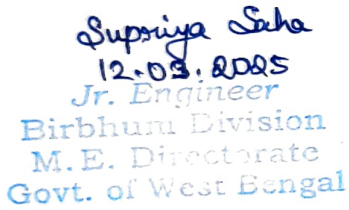 Supriya Saha
12.03.2025
Jr. Engineer
Birbhum Division
M.E. Directorate
Govt. of West Bengal